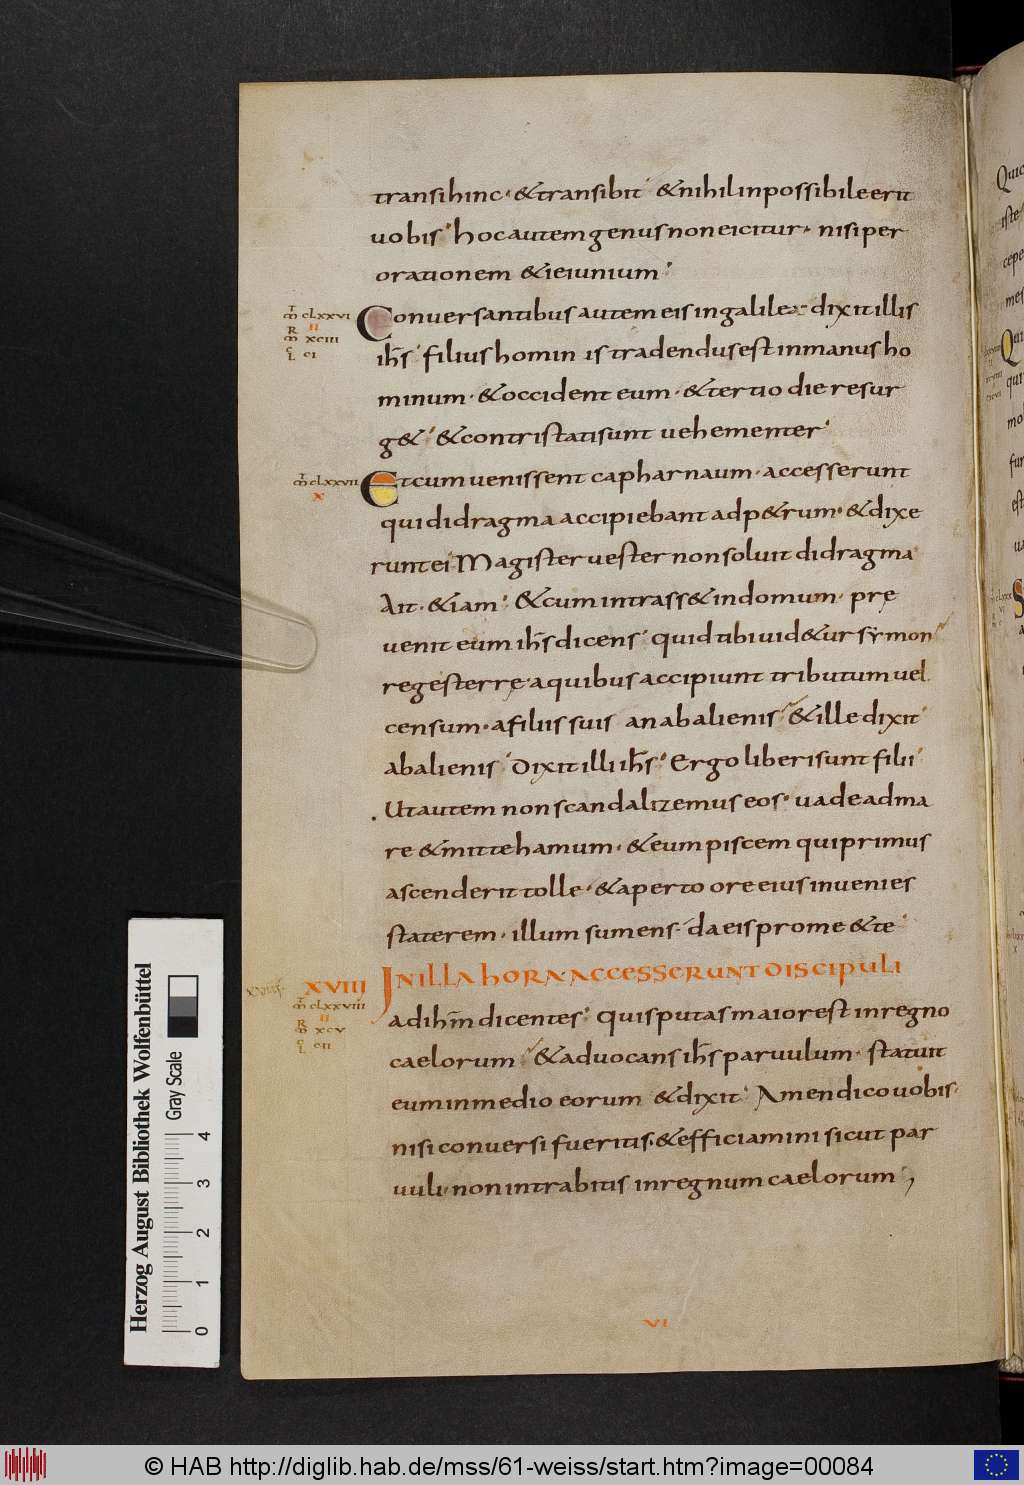 transi hinc · & transibit & nihil inpossibile erit
vobis hoc autem genus non eicitur · nisi per
orationem & ieiunium
m̄ CLXXVI
II
m̄ XCIII
L CI
Conversantibus autem eis in galilea dixit illis
ih̄s filius homin is tradendus est in manus ho
minum · & occident eum · & tertio die resur
g& & contristati sunt vehementer
m̄ CLXXVII
X
Et cum venissent capharnaum · accesserunt
qui didragma accipiebant ad p&rum · & dixe
runt ei Magister vester non solvit didragma
Ait · &iam & cum intrass& in domum · pre
venit eum ih̄s dicens quid tibi vid&ur symon
reges terrę a quibus accipiunt tributum vel
censum · a filiis suis an ab alienis & ille dixit
ab alienis Dixit illi ih̄s Ergo liberi sunt filii
Ut autem non scandalizemus eos vade ad ma
re & mitte hamum · & eum piscem qui primus
ascenderit tolle · & aperto ore eius invenies
staterem · illum sumens da eis pro me & te
XVIII
m̄ CLXXVIII
II
m̄ XCV
L CII
IN ILLA HORA ACCESSERUNT DISCIPULI
ad ih̄m dicentes quis putas maior est in regno
caelorum & advocans ih̄s parvulum · statuit
eum in medio eorum & dixit Amen dico vobis
nisi conversi fueritis · & efficiamini sicut par
vuli · non intrabitis in regnum caelorum
VI
Herzog August Bibliothek Wolfenbüttel
Gray Scale
0 1 2 3 4
© HAB http://diglib.hab.de/mss/61-weiss/start.htm?image=00084